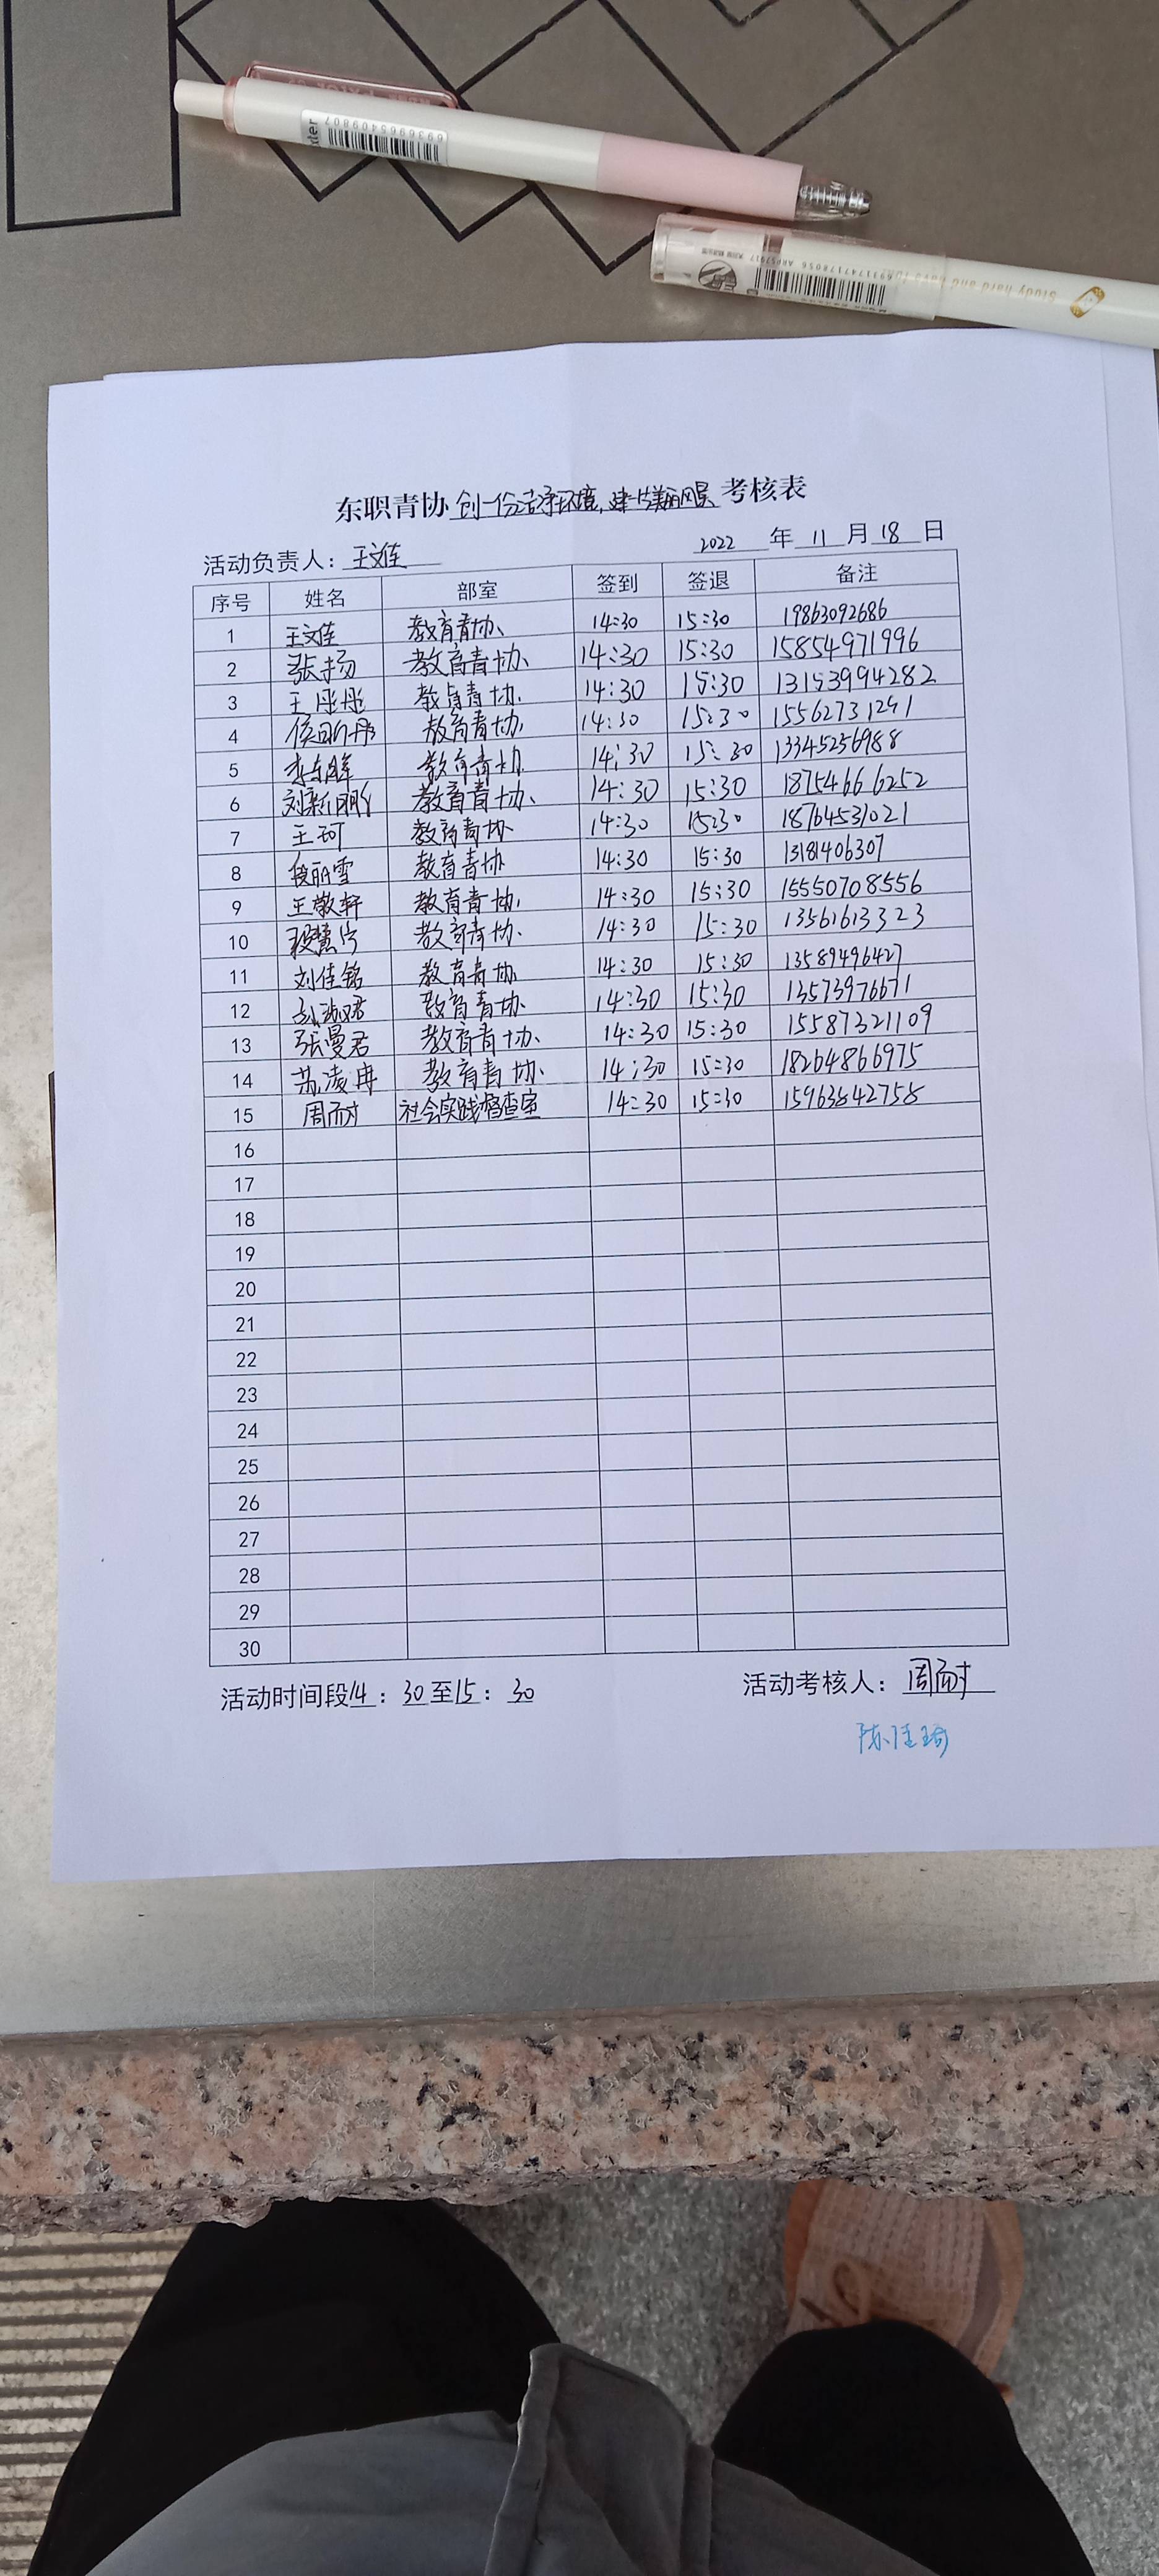 6936965409807
6931747178056 ARP57917
Study hard and
东职青协 创一份洁净环境,建一片美丽风景 考核表
活动负责人: 王文佳 2022 年 11 月 18 日
序号 姓名 部室 签到 签退 备注
1 王文佳 教育青协 14:30 15:30 19863092686
2 张扬 教育青协 14:30 15:30 15854971996
3 王彤彤 教育青协 14:30 15:30 13153994282
4 侯昕彤 教育青协 14:30 15:30 15562731291
5 李东晖 教育青协 14:30 15:30 13345256988
6 刘新丽 教育青协 14:30 15:30 18754666252
7 王珂 教育青协 14:30 15:30 18764531021
8 段丽雪 教育青协 14:30 15:30 13181406307
9 王敬轩 教育青协 14:30 15:30 15550708556
10 段慧宁 教育青协 14:30 15:30 13561613323
11 刘佳铭 教育青协 14:30 15:30 13589496427
12 教育青协 14:30 15:30 13573976671
13 张曼君 教育青协 14:30 15:30 15587321109
14 苏凌冉 教育青协 14:30 15:30 18264866975
15 周耐 社会实践督查室 14:30 15:30 15963842758
16
17
18
19
20
21
22
23
24
25
26
27
28
29
30
活动时间段14:30至15:30 活动考核人: 周耐
陈佳琦